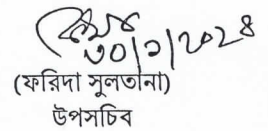 ৩০/১/২০২৪
(ফরিদা সুলতানা)
উপসচিব